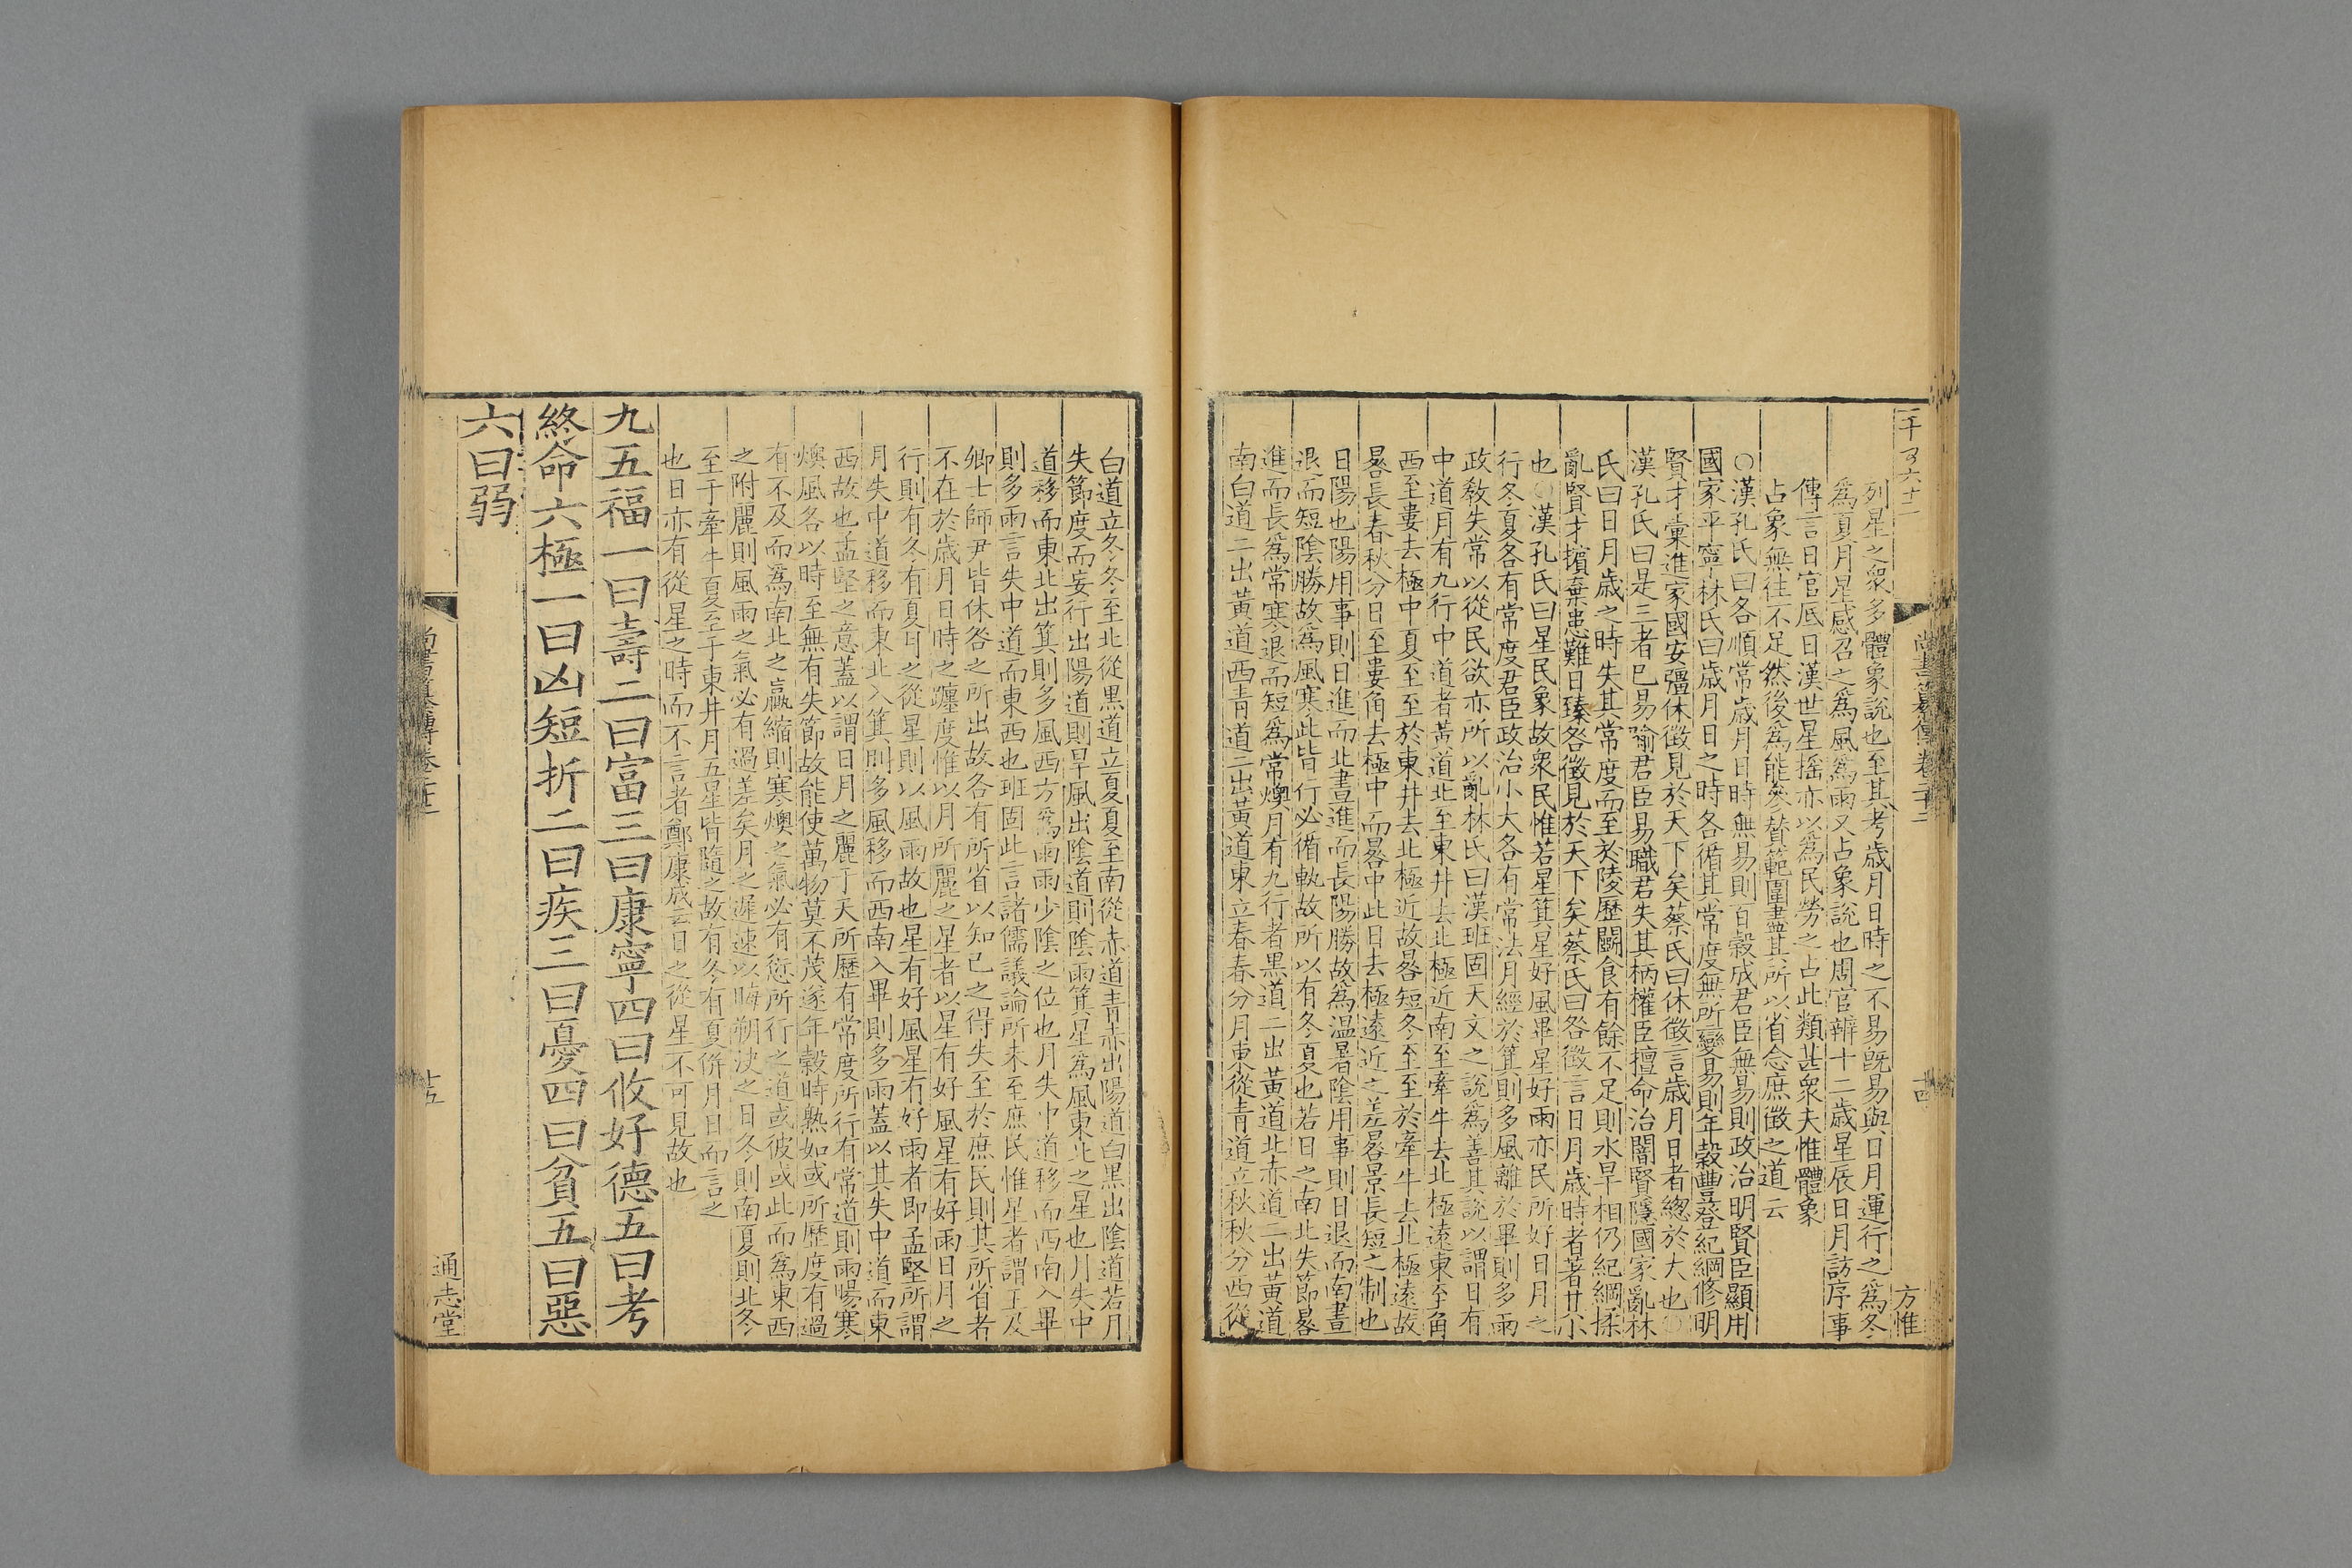 列星之衆多體象說也至其考歲月日時之不易旣易與日月運行之爲冬
爲夏月星感召之爲風爲雨又占象說也周官辨十二歲星辰日月訪序事
傳言日官底日漢世星搖亦以爲民勞之占此類甚衆夫惟體象
占象無往不足然後爲能參賛範圍盡其所以省念庶徵之道云
○漢孔氏曰各順常歲月日時無易則百穀成君臣無易則政治明賢臣顯用
國家平寧林氏曰歲月日之時各循其常度無所變易則年穀豐登紀綱修明
賢才彚進家國安彊休徵見於天下矣蔡氏曰休徵言歲月日者總於大也○
漢孔氏曰是三者已易喻君臣易職君失其柄權臣擅命治闇賢隱國家亂林
氏曰日月歲之時失其常度而至於陵歷鬭食有餘不足則水旱相仍紀綱揉
亂賢才擯棄患難日臻咎徵見於天下矣蔡氏曰咎徵言日月歲時者著其小
也○漢孔氏曰星民象故衆民惟若星箕星好風畢星好雨亦民所好日月之
行冬夏各有常度君臣政治小大各有常法月經於箕則多風離於畢則多雨
政敎失常以從民欲亦所以亂林氏曰漢班固天文之說爲善其說以謂日有
中道月有九行中道者黃道北至東井去北極近南至牽牛去北極遠東至角
西至婁去極中夏至至於東井去北極近故晷短冬至至於牽牛去北極遠故
晷長春秋分日至婁角去極中而晷中此日去極遠近之差晷景長短之制也
日陽也陽用事則日進而北晝進而長陽勝故爲温暑陰用事則日退而南晝
退而短陰勝故爲風寒此皆行必循軌故所以有冬夏也若日之南北失節晷
進而長爲常寒退而短爲常燠月有九行者黑道二出黃道北赤道二出黃道
南白道二出黃道西青道二出黃道東立春春分月東從青道立秋秋分西從
方惟
白道立冬冬至北從黑道立夏夏至南從赤道青赤出陽道白黑出陰道若月
失節度而妄行出陽道則旱風出陰道則陰雨箕星爲風東北之星也月失中
道移而東北出箕則多風西方爲雨雨少陰之位也月失中道移而西南入畢
則多雨言失中道而東西也班固此言諸儒議論所未至庶民惟星者謂王及
卿士師尹皆休咎之所出故各有所省以知已之得失至於庶民則其所省者
不在於歲月日時之躔度惟以月所麗之星者以星有好風星有好雨日月之
行則有冬有夏月之從星則以風雨故也星有好風星有好雨者即孟堅所謂
月失中道移而東北入箕則多風移而西南入畢則多雨蓋以其失中道而東
西故也孟堅之意蓋以謂日月之麗于天所歷有常度所行有常道則雨暘寒
燠風各以時至無有失節故能使萬物莫不茂遂年穀時熟如或所歷度有過
有不及而爲南北之贏縮則寒燠之氣必有愆所行之道或彼或此而爲東西
之附麗則風雨之氣必有過差矣月之遲速以晦朔決之日冬則南夏則北冬
至于牽牛夏至于東井月五星皆隨之故有冬有夏併月日而言之
也日亦有從星之時而不言者鄭康成云日之從星不可見故也
九五福一曰壽二曰富三曰康寧四曰攸好德五曰考
終命六極一曰凶短折二曰疾三曰憂四曰貧五曰惡
六曰弱
十五
通志堂